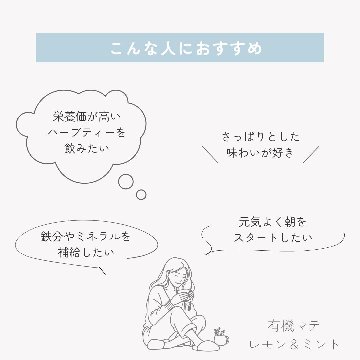 こんな人におすすめ
栄養価が高い
ハーブティーを
飲みたい
さっぱりとした
味わいが好き
鉄分やミネラルを
補給したい
元気よく朝を
スタートしたい
有機マテ
レモン&ミント